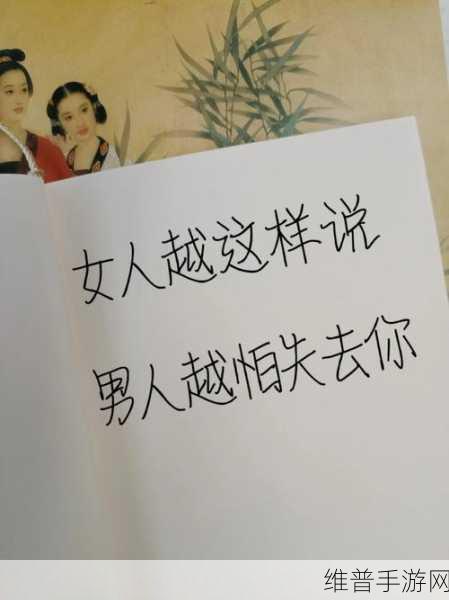 女人越这样说
男人越怕失去你
维普手游网